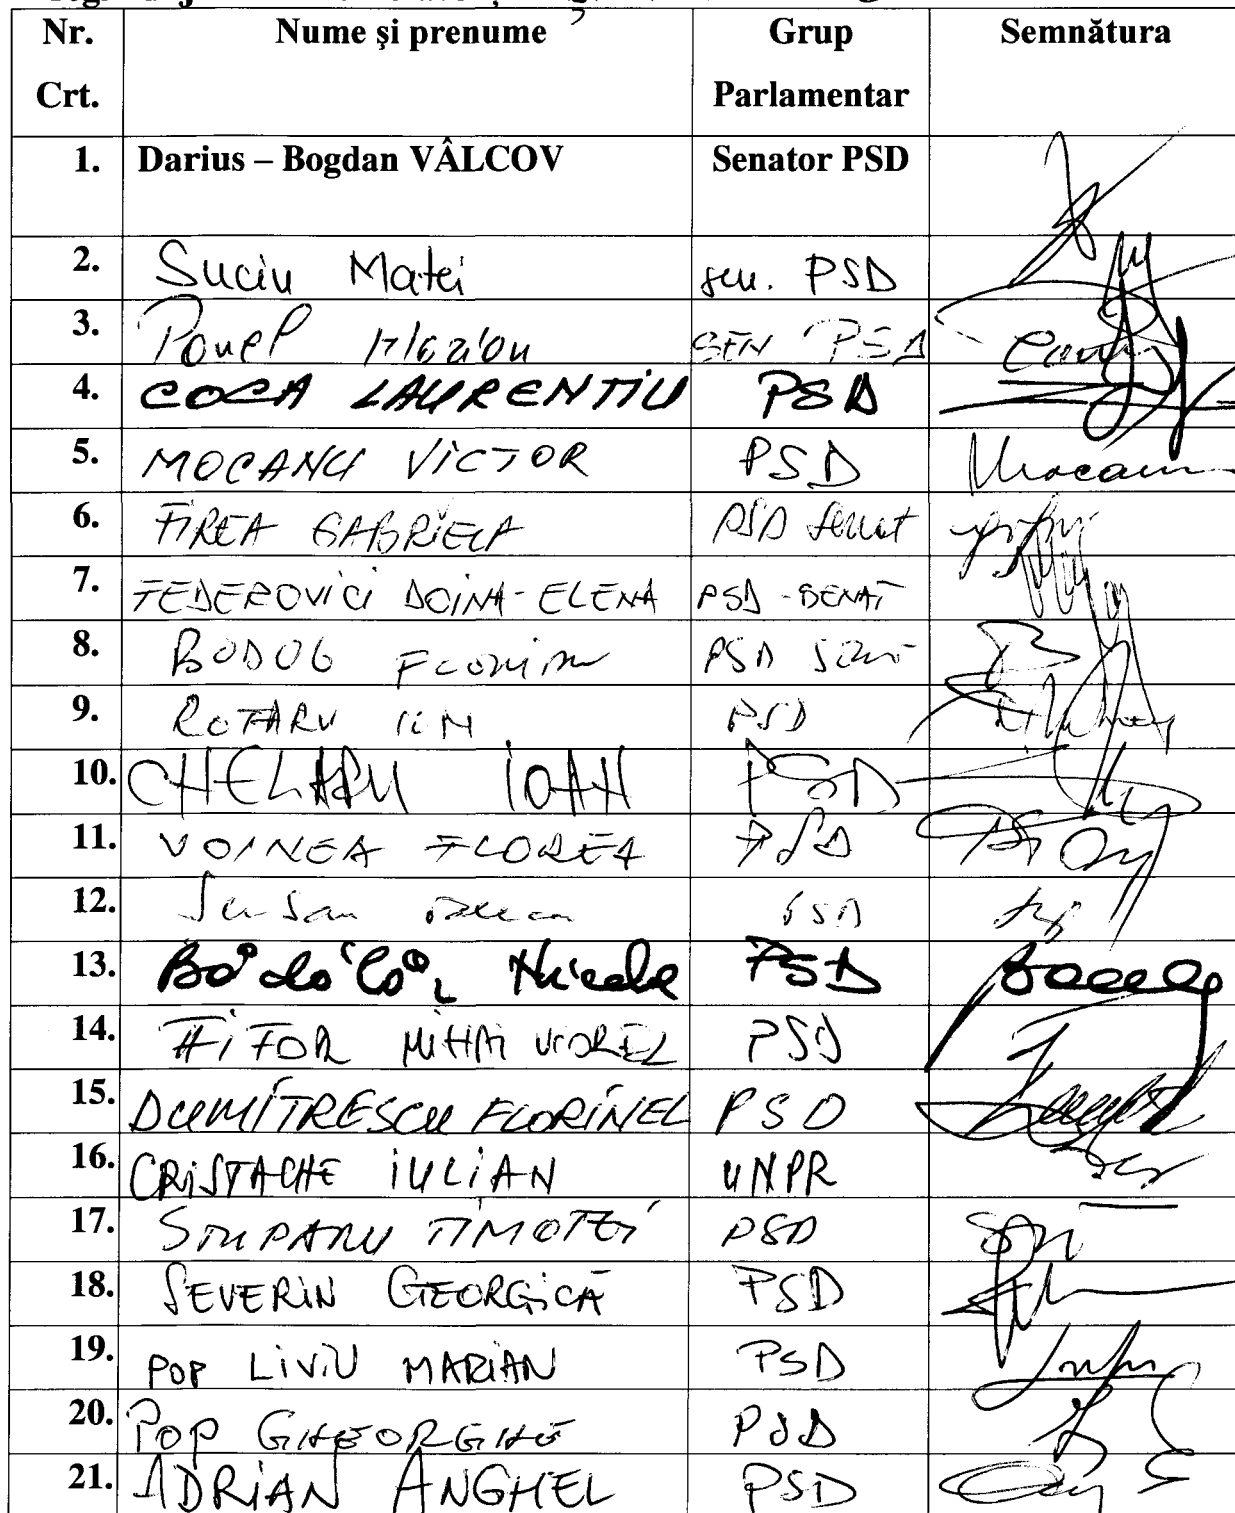 Nr. Crt. Nume şi prenume Grup Parlamentar Semnătura
1. Darius – Bogdan VÂLCOV Senator PSD
2. Suciu Matei sen. PSD
3. Pavel SEN PSD
4. COCA LAURENTIU PSD
5. MOCANU VICTOR PSD Mocanu
6. FIREA GABRIELA PSD Senat
7. FEDEROVICI DOINA-ELENA PSD-SENAT
8. BODOG FLORIAN PSD
9. ROTARU ION PSD
10. CHELARU IOAN PSD
11. VOINEA FLOREA PSD
12. PSD
13. Bădălău Nicolae PSD
14. FIFOR MIHAI VIOREL PSD
15. DUMITRESCU FLORINEL PSD
16. CRISTACHE IULIAN UNPR
17. STUPARU TIMOTEI PSD
18. SEVERIN GEORGICĂ PSD
19. POP LIVIU MARIAN PSD
20. POP GHEORGHE PSD
21. ADRIAN ANGHEL PSD